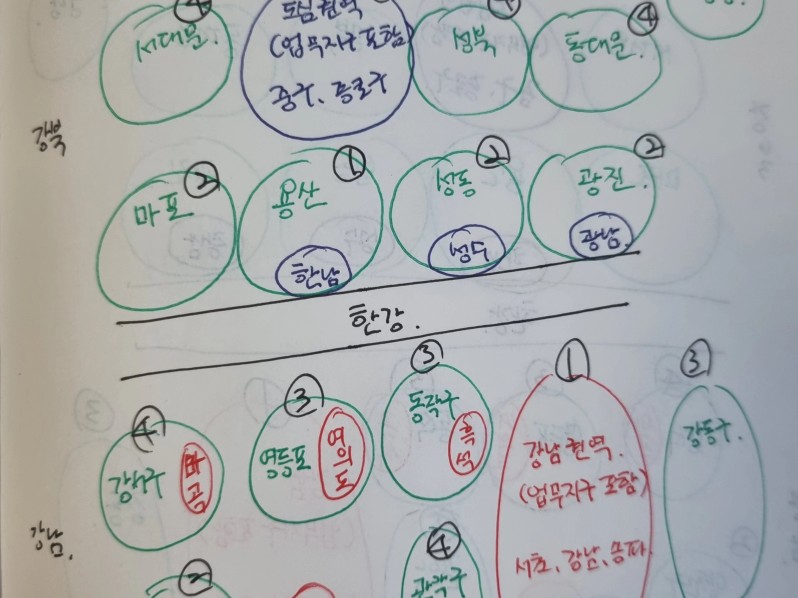 ④
서대문.
도심권역
(업무지구 포함)
중구, 종로구
④
성북
④
동대문.
강북
②
마포
①
용산
한남
②
성동
성수
②
광진.
광남.
한강.
④
강서구
마곡
③
영등포
여의도
③
동작구
흑석
①
강남권역.
(업무지구 포함)
서초, 강남, 송파.
③
강동구.
강남.
②
④
관악구